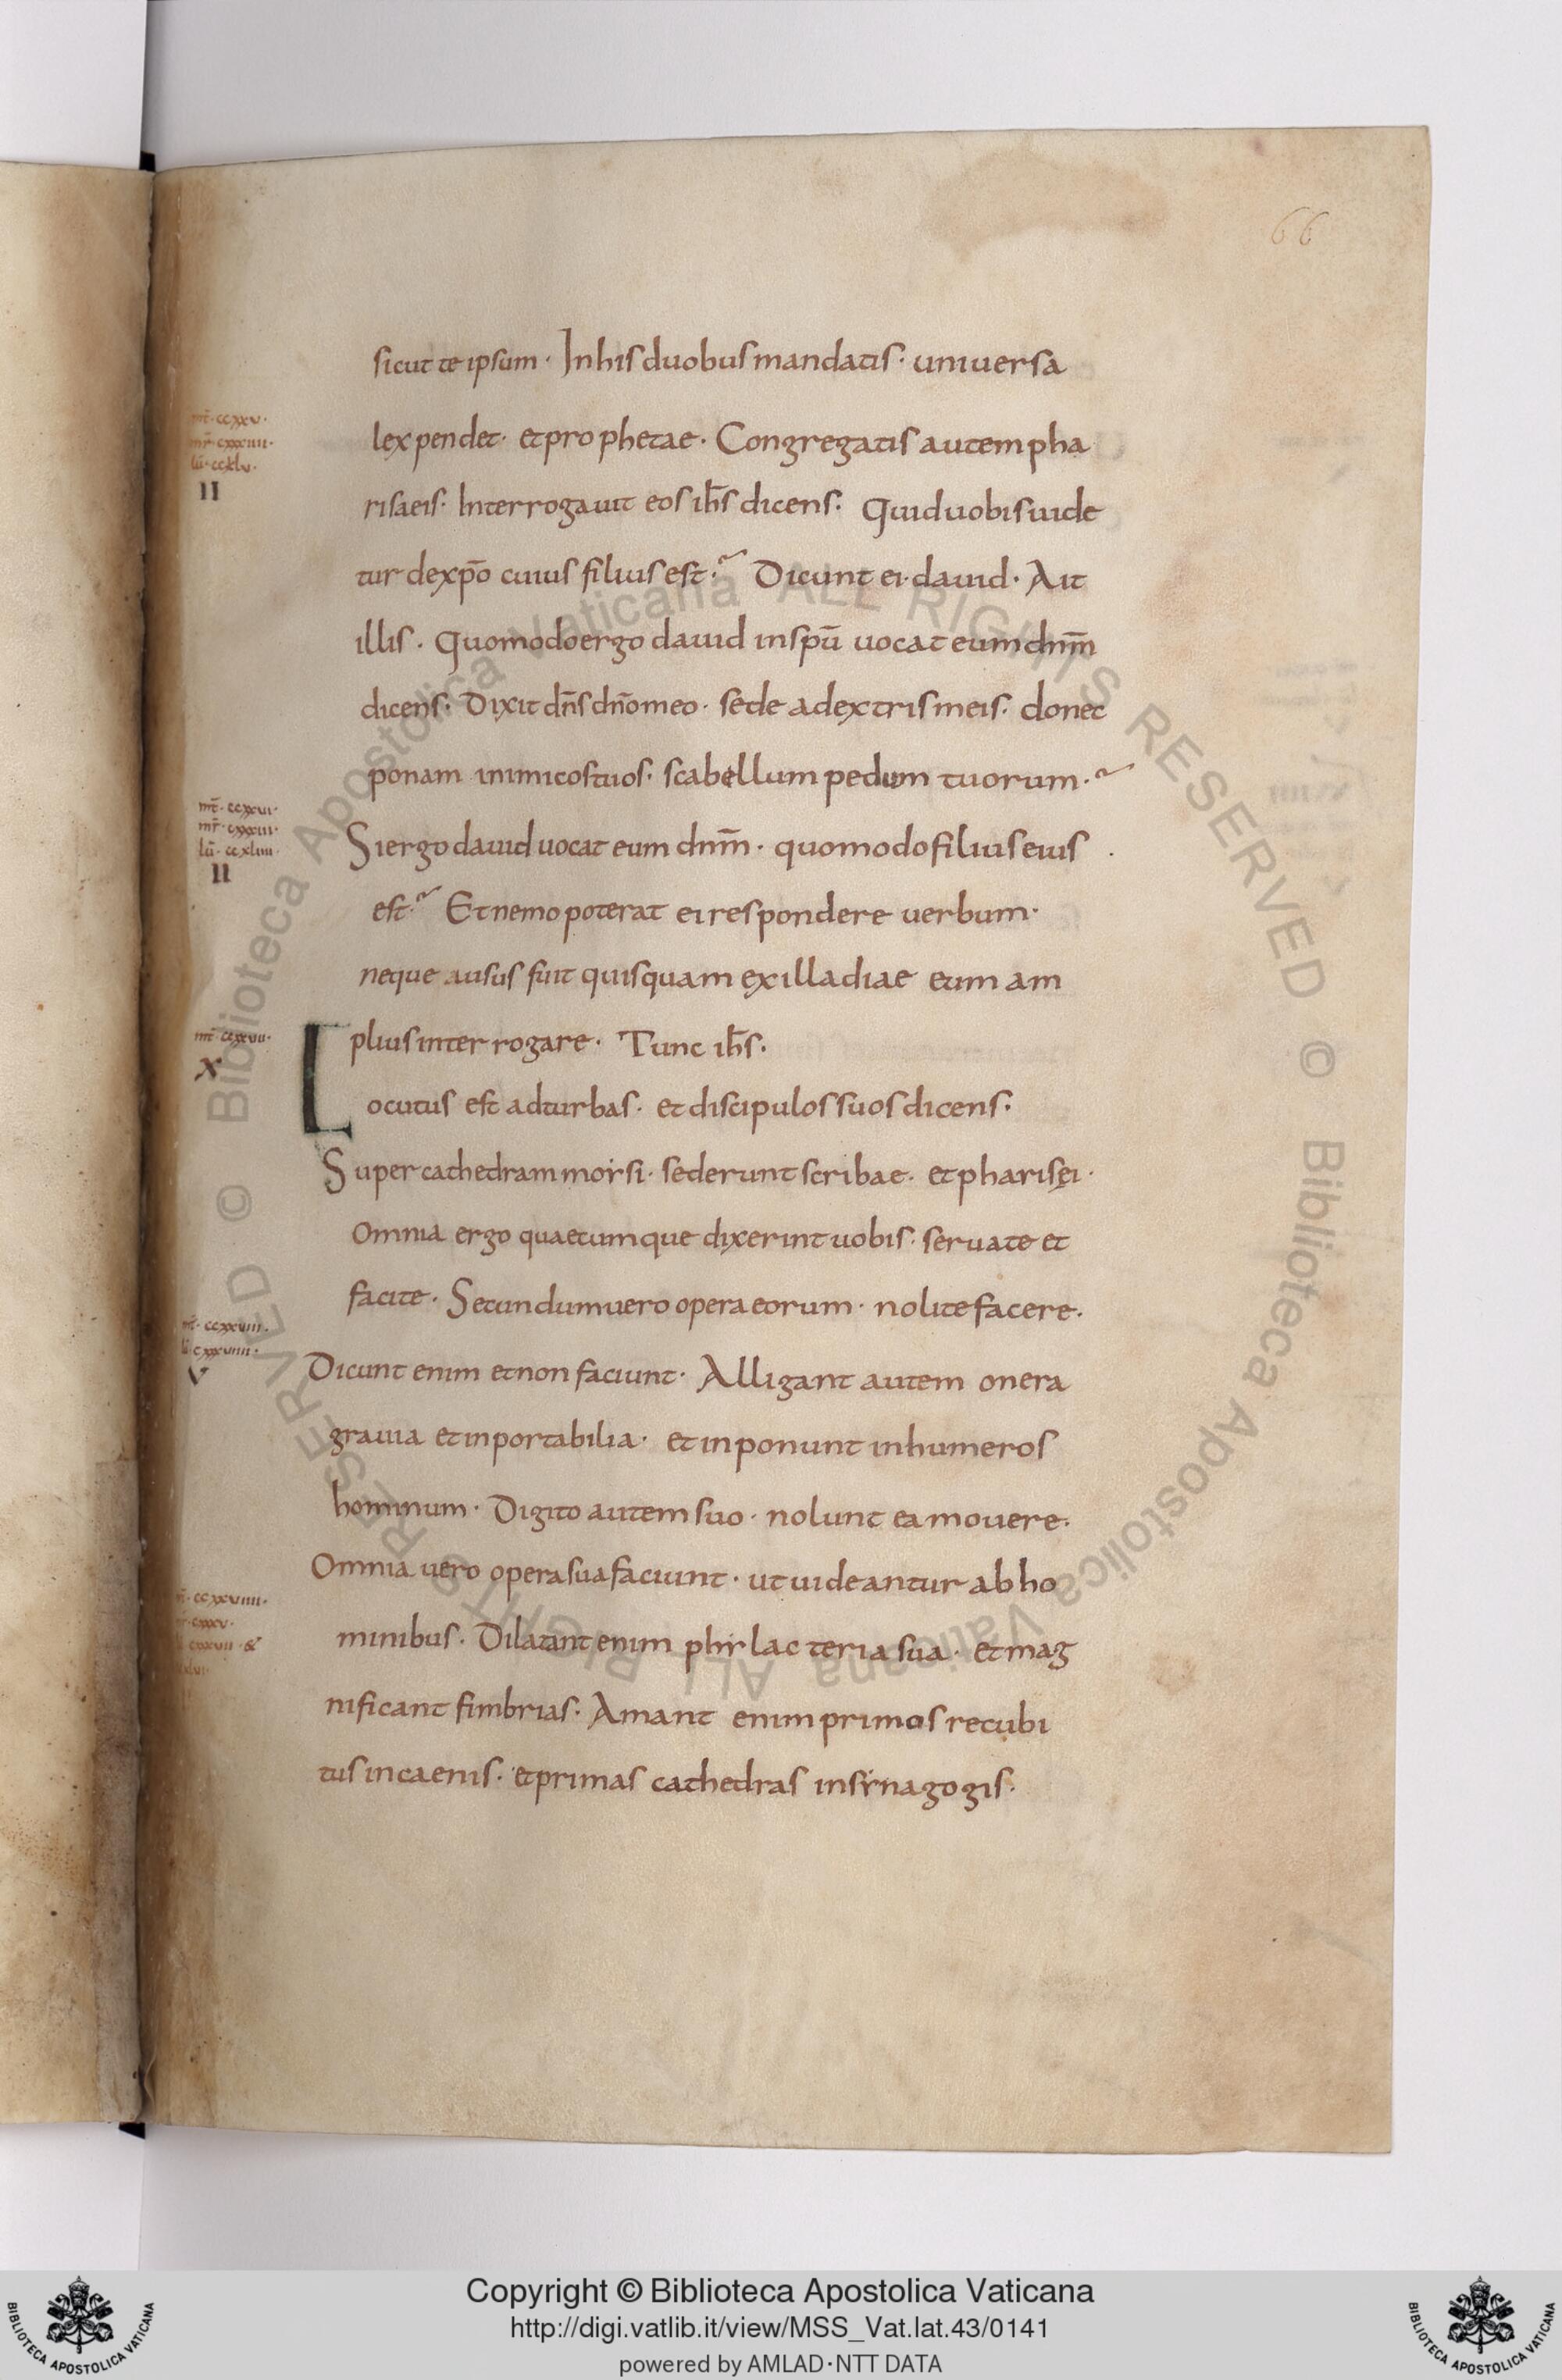 66
sicut te ipsum · In his duobus mandatis · universa
lex pendet · et prophetae · Congregatis autem pha
mt̄ · ccxxv ·
mr̄ · cxxxiiii ·
lū · ccxlv ·
II
risaeis · Interrogauit eos ih̄s dicens · Quid uobis uide
tur de xp̄o cuius filius est ·~ Dicunt ei · dauid · Ait
illis · Quomodo ergo dauid in spū uocat eum dnm̄
dicens · Dixit dn̄s dn̄o meo · sede a dextris meis · donec
ponam inimicos tuos · scabellum pedum tuorum ·~
mt̄ · ccxxvi ·
mr̄ · cxxxiii ·
lū · ccxliiii ·
II
Si ergo dauid uocat eum dnm̄ · quomodo filius eius
est ·~ Et nemo poterat ei respondere uerbum ·
neque ausus fuit quisquam ex illa diae eum am
mt̄ · ccxxvii ·
X
plius interrogare · Tunc ih̄s ·
Locutus est ad turbas · et discipulos suos dicens ·
Super cathedram moysi · sederunt scribae · et pharisęi ·
Omnia ergo quaecumque dixerint uobis · seruate et
facite · Secundum uero opera eorum · nolite facere ·
mt̄ · ccxxviii ·
lū cxxxviiii ·
V
Dicunt enim et non faciunt · Alligant autem onera
grauia et inportabilia · et inponunt in humeros
hominum · Digito autem suo · nolunt ea mouere ·
Omnia uero opera sua faciunt · ut uideantur ab ho
ccxxviiii ·
cxxxv ·
cxxxvii · &
minibus · Dilatant enim phylacteria sua · et mag
nificant fimbrias · Amant enim primos recubi
tus in caenis · et primas cathedras in synagogis ·
© Biblioteca Apostolica Vaticana ALL RIGHTS RESERVED © Biblioteca Apostolica Vaticana ALL RIGHTS RESERVED
Copyright © Biblioteca Apostolica Vaticana
http://digi.vatlib.it/view/MSS_Vat.lat.43/0141
powered by AMLAD·NTT DATA
BIBLIOTECA APOSTOLICA VATICANA
BIBLIOTECA APOSTOLICA VATICANA